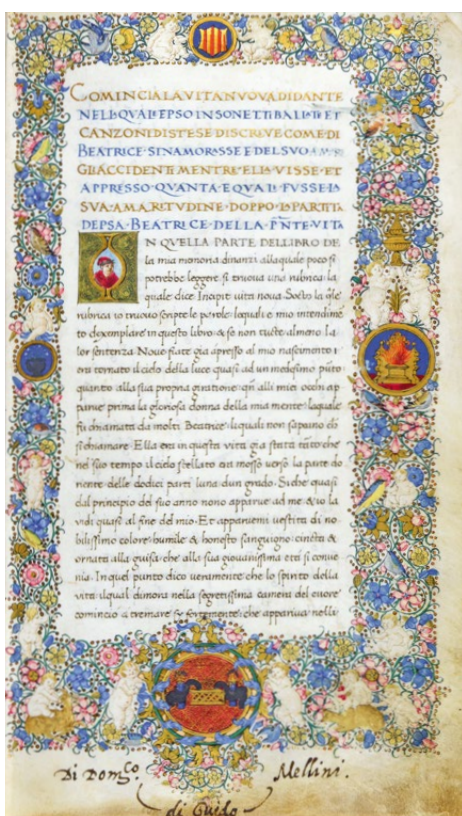 COMINCIA LA VITA NVOVA DI DANTE
NEL QVAL EPSO IN SONETTI BALLATE ET
CANZONI DISTESE DISCRIVE COME DI
BEATRICE SINAMORASSE E DEL SVO
GLI ACCIDENTI MENTRE ELLA VISSE ET
APPRESSO QVANTA E QVALE FVSSE LA
SVA AMARITVDINE DOPPO LA PARTITA
DEPSA BEATRICE DELLA PÑTE VITA
IN QVELLA PARTE DELLIBRO DE
la mia memoria dinanzi allaquale poco si
potrebbe leggere si truova una rubrica la
quale dice Incipit vita nova Sotto la q̃le
rubrica io truovo scripte le parole lequali e mio intendimẽ
to dexemplare in questo libro & se non tutte almeno la
lor sententia Nove fiate gia apresso al mio nascimento
era tornato il cielo della luce quasi ad un medesimo pũto
quanto alla sua propria giratione q̃n alli miei occhi ap
parve prima la gloriosa donna della mia mente laquale
fu chiamata da molti Beatrice liquali non sapeano che
si chiamare Ella era in questa vita gia stata tãto che
nel suo tempo il cielo stellato era mosso verso la parte do
riente delle dodici parti luna dun grado Siche quasi
dal principio del suo anno nono apparve ad me & io la
vidi quasi al fine del mio Et apparvemi vestita di no
bilissimo colore humile & honesto sanguigno cincta &
ornata alla guisa che alla sua giovanissima eta si conve
nia In quel punto dico veramente che lo spirito della
vita ilqual dimora nella segretissima camera del cuore
comincio a tremare si fortemente che appariva nelli
Di Domco Mellini.
di Guido